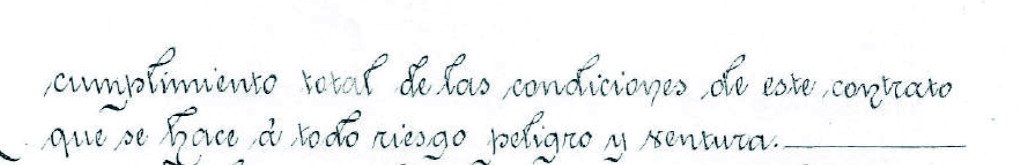 cumplimiento total de las condiciones de este contrato
que se hace á todo riesgo peligro y ventura.